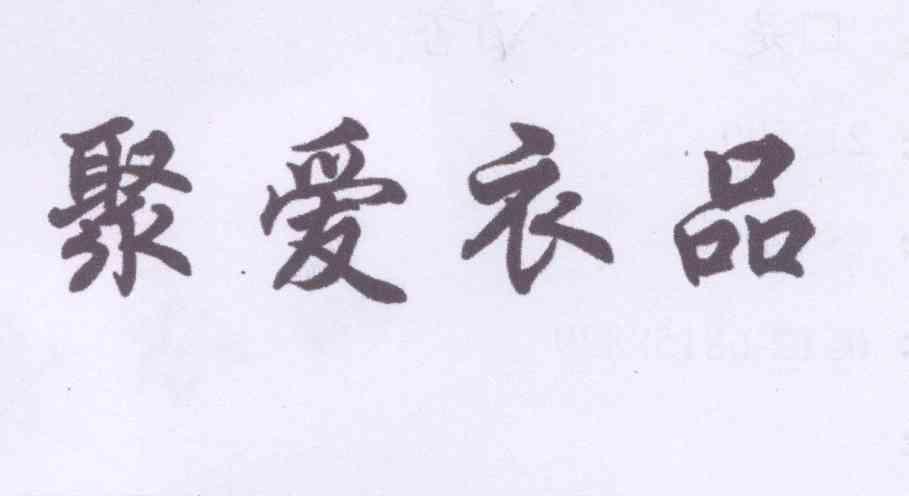 聚爱衣品